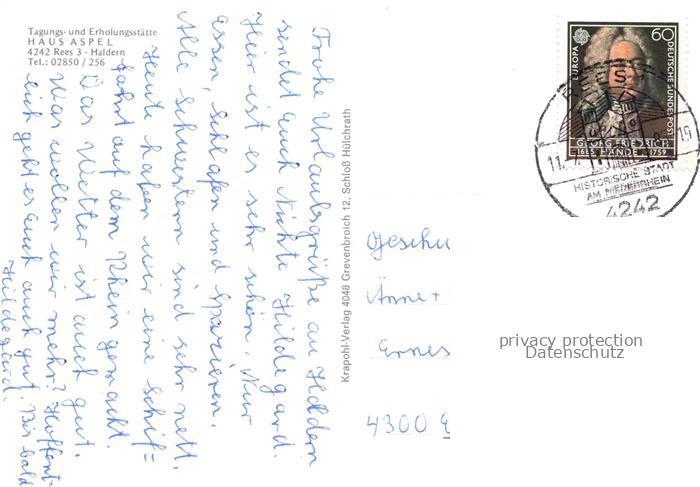 Tagungs- und Erholungsstätte
HAUS ASPEL
4242 Rees 3 - Haldern
Tel.: 02850 / 256
Frohe Urlaubsgrüße an
sendet euch Nichte Hildegard.
Hier ist es sehr schön. Nur
essen, schlafen und spazieren.
Alle Schwestern sind sehr nett.
Heute haben wir eine Schif=
fahrt auf dem Rhein gemacht.
Das Wetter ist auch gut.
Was wollen wir mehr? Hoffent-
lich geht es euch auch gut. Bis bald
Hildegard.
Krapohl-Verlag 4048 Grevenbroich 12, Schloß Hülchrath
EUROPA
60
DEUTSCHE BUNDESPOST
GEORG FRIEDRICH
1685 HÄNDEL 1759
HISTORISCHE STADT
AM NIEDERRHEIN
4242
Geschw
Änne +
Ernes
4300 E
privacy protection
Datenschutz